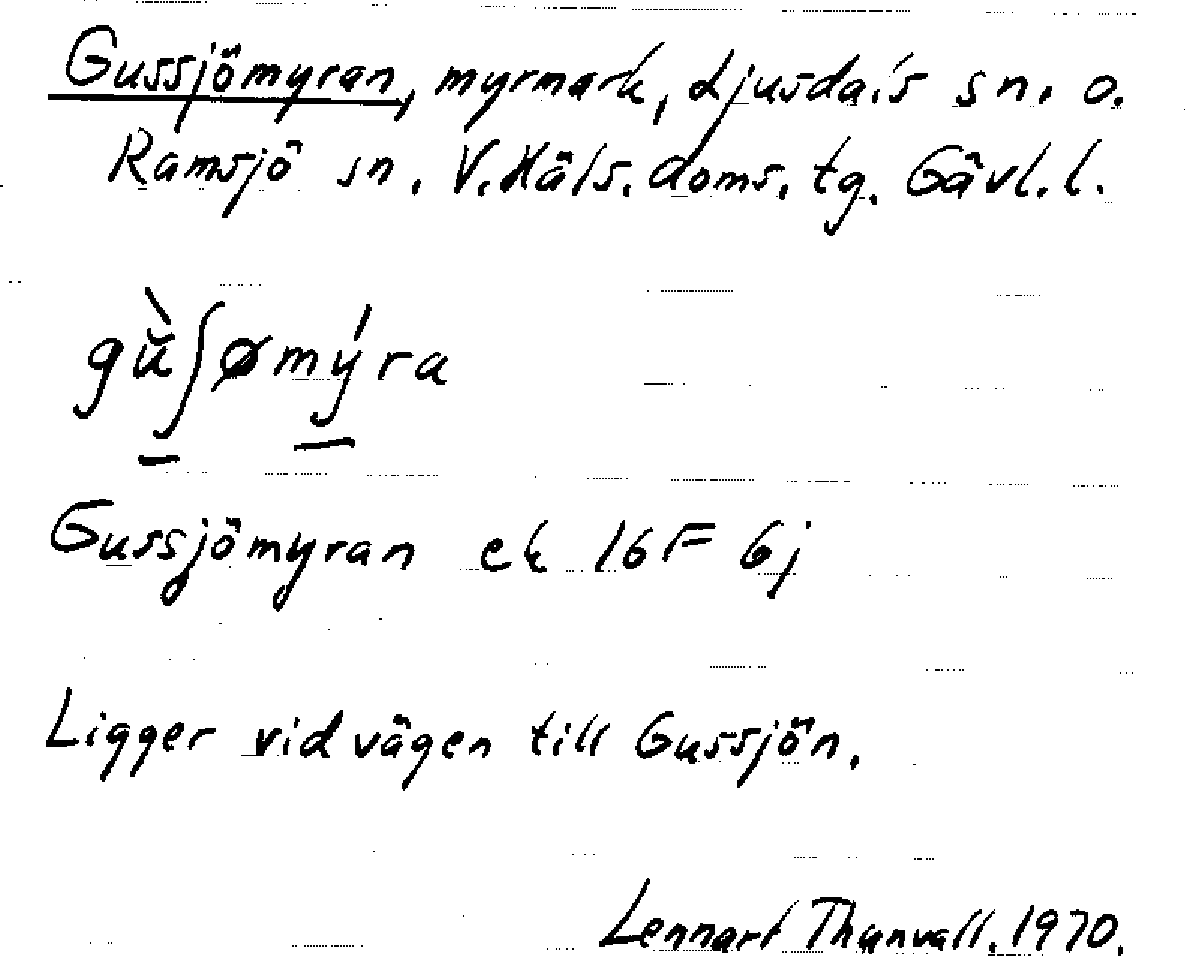 Gussjömyran, myrmark, Ljusdals sn. o.
Ramsjö sn. V. Häls. doms. tg. Gävl. l.
gùʃømýra
Gussjömyran ek 16F 6j
Ligger vid vägen till Gussjön.
Lennart Thunvall. 1970.